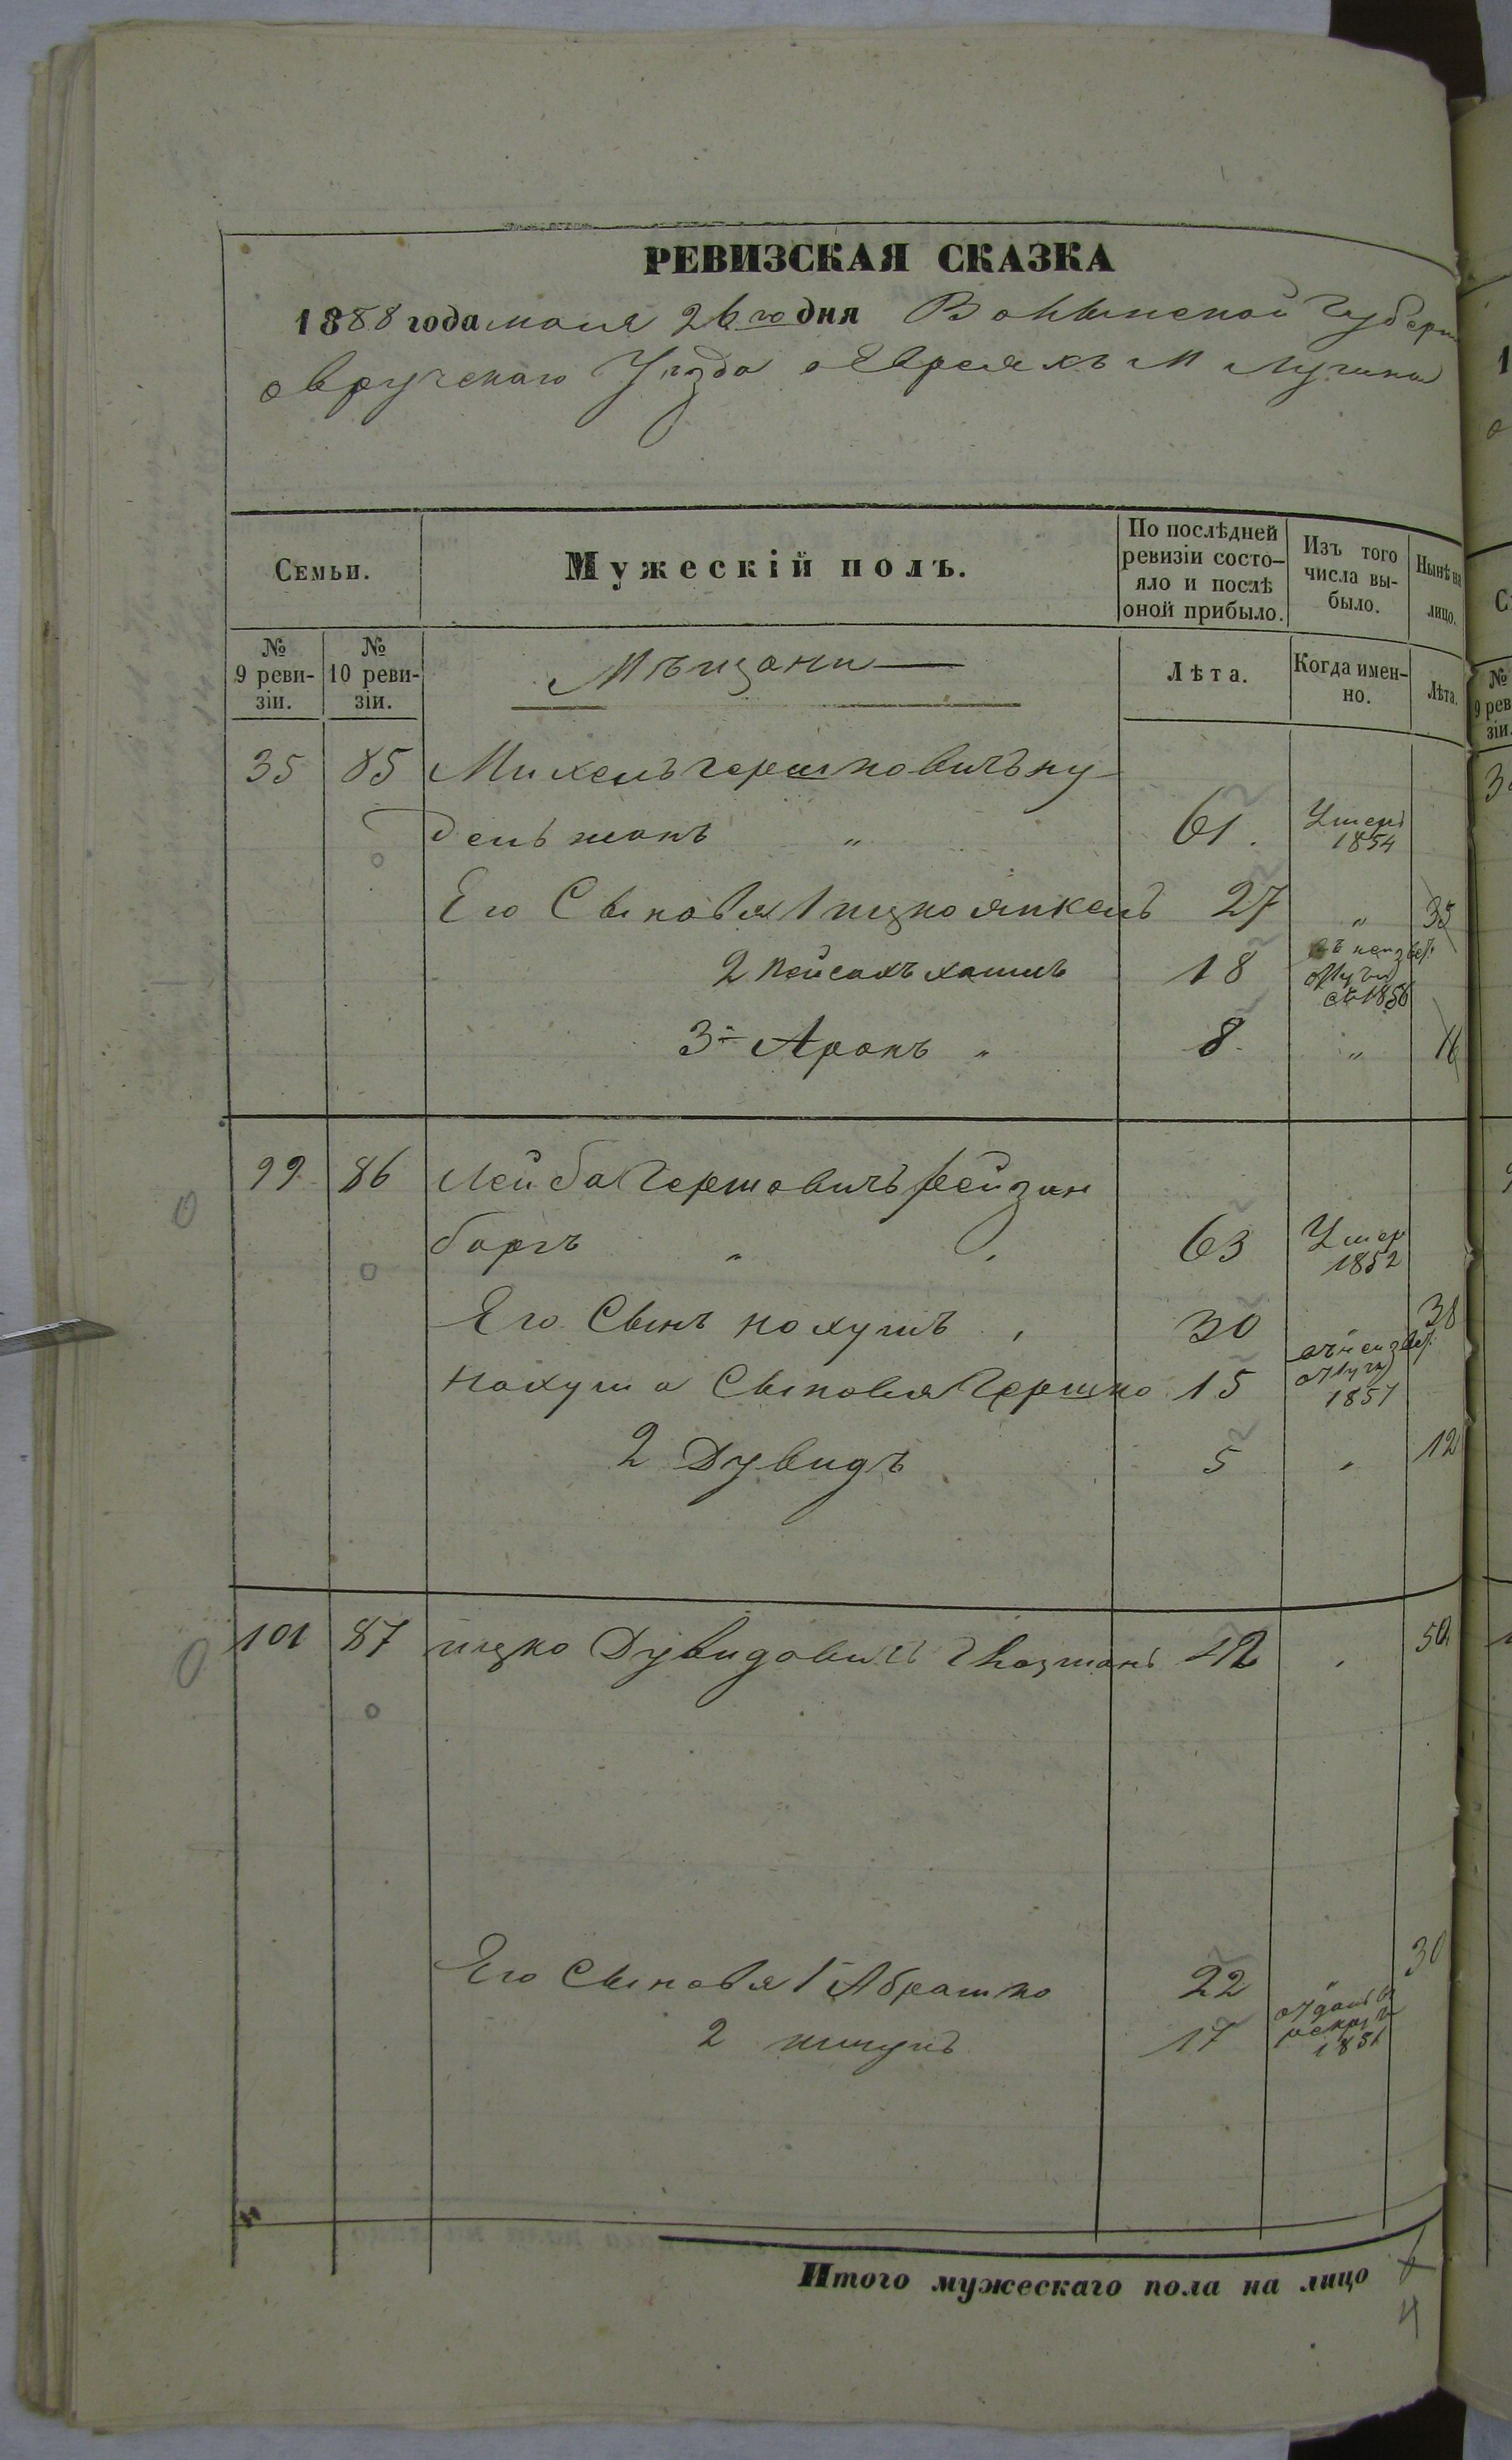 РЕВИЗСКАЯ СКАЗКА
1888 года мая 26 го дня Волынской Губерн
овручскаго Уезда о Евреяхъ М Лугины
Семьи.
Мужескій полъ.
По послѣдней ревизіи состо-
яло и послѣ оной прибыло.
Изъ того числа вы-
было.
Нынѣ на лицо.
№ 9 реви-
зіи.
№ 10 реви-
зіи.
Мѣщани
Лѣта.
Когда имен-
но.
Лѣта.
35 85 Михель гершковичъ ну
дель манъ " 61. Умеръ 1854
Его Сыновья 1 ицко янкель 27 " 35
2 пейсахъ хаимъ 18 1856
3й Аронъ " 8 " 16
99 86 Лейба Гершовичъ рейзин
боргъ " " 63 Умер 1852
Его Сынъ нохумъ 30 " 38
Нохума Сыновья Гершко 15 1857
2 Дувидъ 5 " 12
101 87 ицко Дувидовичъ 42 " 50
Его Сыновья 1 Абрашко 22 " 30
2 17 отданъ в рекруты 1851
Итого мужескаго пола на лицо
4